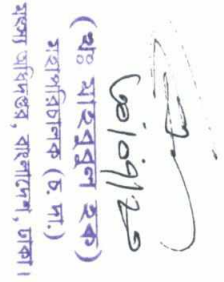 ৩০/০৭/২০
(মোঃ মাহবুবুল হক)
মহাপরিচালক (চ. দা.)
মৎস্য অধিদপ্তর, বাংলাদেশ, ঢাকা।